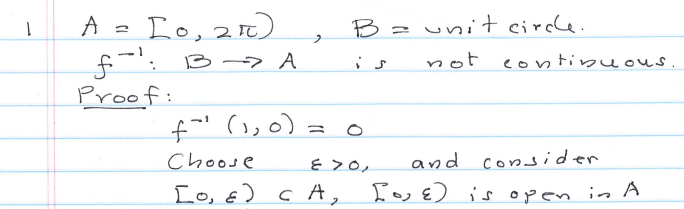 1 A = [0, 2π) , B = unit circle.
f⁻¹: B → A is not continuous.
Proof:
f⁻¹ (1,0) = 0
Choose ε>0, and consider
[0, ε) ⊂ A, [0, ε) is open in A